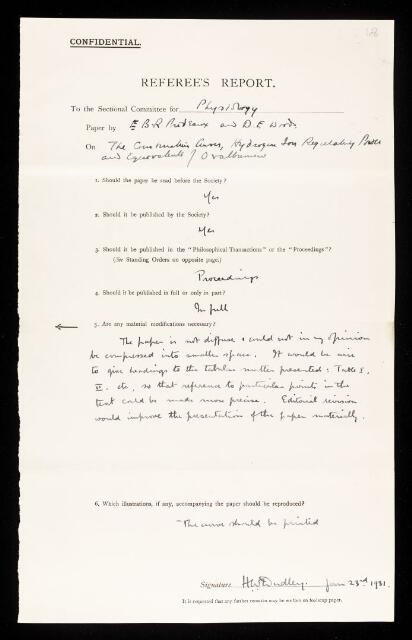 CONFIDENTIAL.
REFEREE'S REPORT.
To the Sectional Committee for Physiology
Paper by E. B. R. Prideaux and D. E. Woods
On The Curves, Hydrogen Ion Regulating Power
and Equivalents of Ovalbumin
1. Should the paper be read before the Society?
Yes
2. Should it be published by the Society?
Yes
3. Should it be published in the "Philosophical Transactions" or the "Proceedings"?
(See Standing Orders on opposite page.)
Proceedings
4. Should it be published in full or only in part?
In full
5. Are any material modifications necessary?
The paper is not diffuse & could not in my opinion
be compressed into smaller space. It would be wise
to give headings to the tabular matter presented: Table I,
II. etc, so that reference to particular points in the
text could be made more precise. Editorial revision
would improve the presentation of the paper materially.
6. Which illustrations, if any, accompanying the paper should be reproduced?
The curve should be printed
Signature H.W. Dudley. Jan 23rd 1931.
It is requested that any further remarks may be written on foolscap paper.